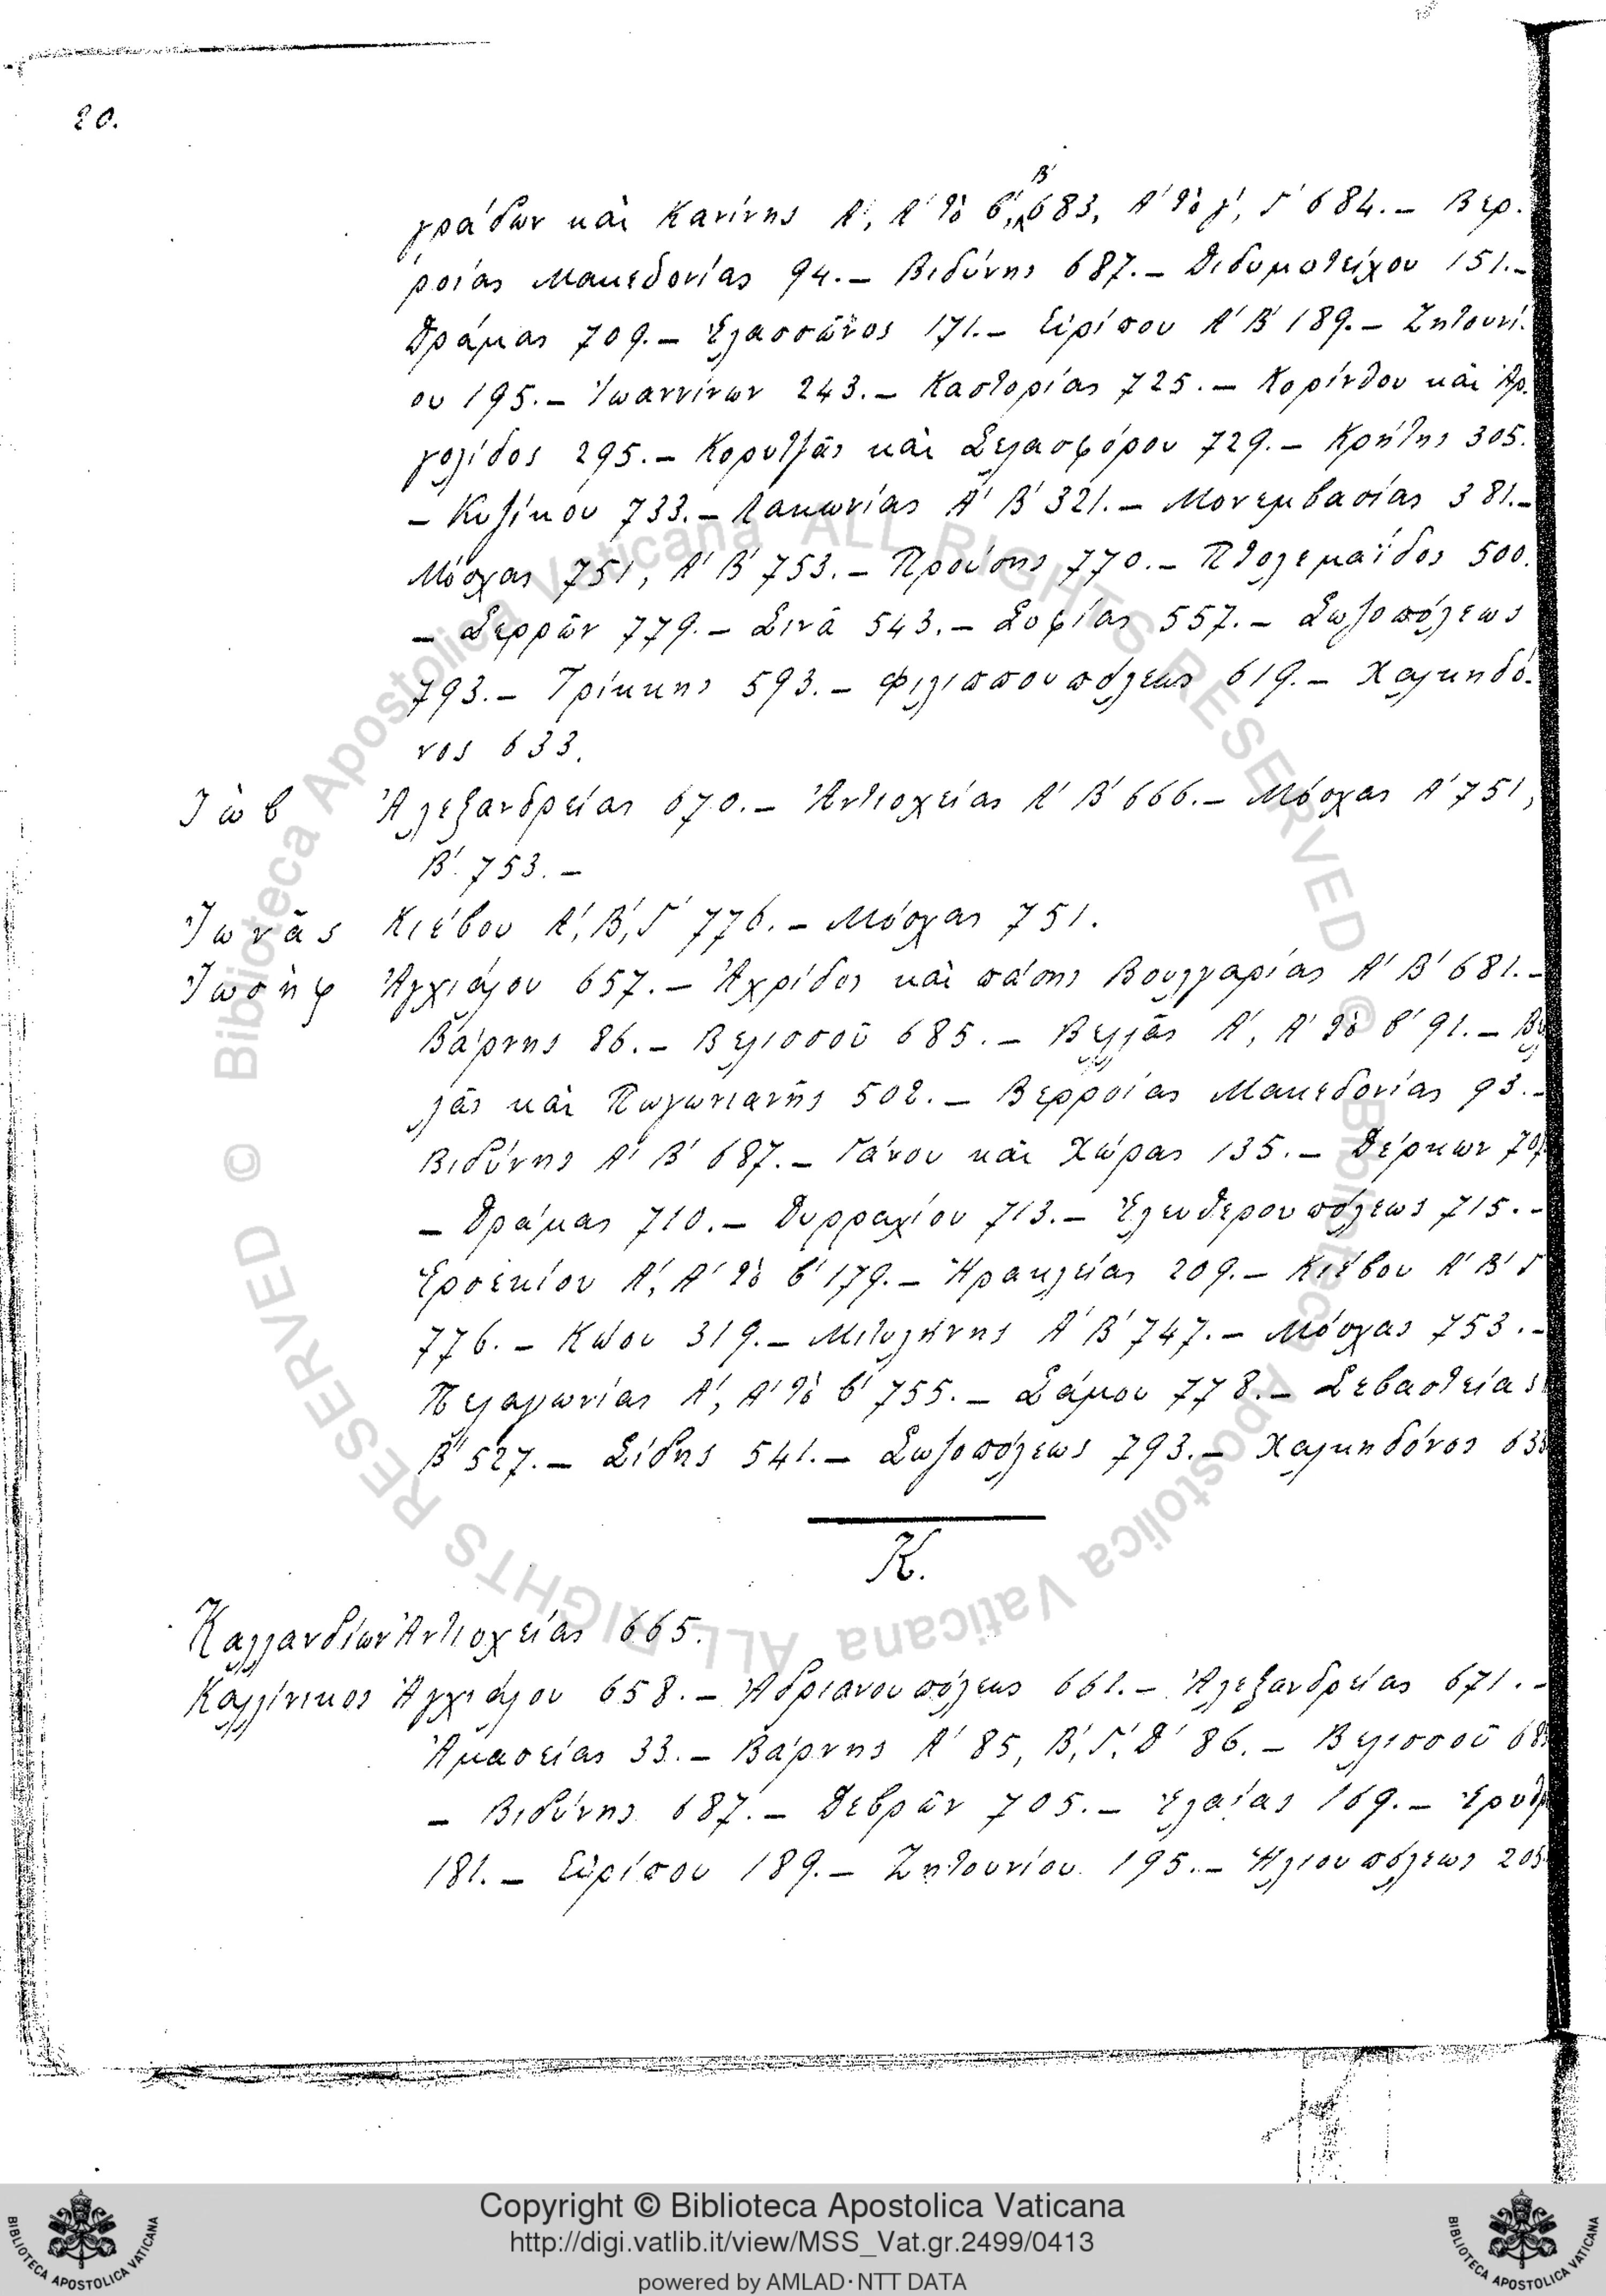 20.
γράδων καὶ Κανίνης Α΄, Α΄ τὸ β΄, Β΄ 683, Α΄ τὸ γ΄, Γ΄ 684.– Βερ-
ροίας Μακεδονίας 94.– Βιδύνης 687.– Διδυμοτείχου 151.–
Δράμας 709.– Ἐλασσῶνος 171.– Εὐρίπου Α΄ Β΄ 189.– Ζητουνί-
ου 195.– Ἰωαννίνων 243.– Καστορίας 725.– Κορίνθου καὶ Ἀρ-
γολίδος 295.– Κορυτζᾶς καὶ Σελασφόρου 729.– Κρήτης 305.
– Κυζίκου 733.– Λακωνίας Α΄ Β΄ 321.– Μονεμβασίας 381.–
Μόσχας 751, Α΄ Β΄ 753.– Προύσης 770.– Πτολεμαΐδος 500.
– Σερρῶν 779.– Σινᾶ 543.– Σοφίας 557.– Σωζοπόλεως
793.– Τρίκκης 593.– Φιλιππουπόλεως 619.– Χαλκηδό-
νος 633.
Ἰὼβ Ἀλεξανδρείας 670.– Ἀντιοχείας Α΄ Β΄ 666.– Μόσχας Α΄ 751,
Β΄. 753.–
Ἰωνᾶς Κιέβου Α΄, Β΄, Γ΄ 776.– Μόσχας 751.
Ἰωσὴφ Ἀγχιάλου 657.– Ἀχρίδος καὶ πάσης Βουλγαρίας Α΄ Β΄ 681.–
Βάρνης 86.– Βελισσοῦ 685.– Βελλᾶς Α΄, Α΄ τὸ β΄ 91.– Βελ
λᾶς καὶ Πωγωνιανῆς 502.– Βερροίας Μακεδονίας 93.–
Βιδύνης Α΄ Β΄ 687.– Γάνου καὶ Χώρας 135.– Δέρκων 707
– Δράμας 710.– Δυρραχίου 713.– Ἐλευθερουπόλεως 715.–
Ἐρσεκίου Α΄, Α΄ τὸ β΄ 179.– Ἡρακλείας 209.– Κιέβου Α΄ Β΄ Γ΄
776.– Κώου 319.– Μιτυλήνης Α΄ Β΄ 747.– Μόσχας 753.–
Πελαγωνίας Α΄, Α΄ τὸ β΄ 755.– Σάμου 778.– Σεβαστείας
Β΄ 527.– Σίδης 541.– Σωζοπόλεως 793.– Χαλκηδόνος 633
Κ.
Καλλανδίων Ἀντιοχείας 665.
Καλλίνικος Ἀγχιάλου 658.– Ἀδριανουπόλεως 661.– Ἀλεξανδρείας 671.–
Ἀμασείας 33.– Βάρνης Α΄ 85, Β΄, Γ΄, Δ΄ 86.– Βελισσοῦ 685
– Βιδύνης 687.– Δεβρῶν 705.– Ἐλαίας 169.– Ἐρυθρ
181.– Εὐρίπου 189.– Ζητουνίου 195.– Ἡλιουπόλεως 205
© Biblioteca Apostolica Vaticana ALL RIGHTS RESERVED © Biblioteca Apostolica Vaticana ALL RIGHTS RESERVED
Copyright © Biblioteca Apostolica Vaticana
http://digi.vatlib.it/view/MSS_Vat.gr.2499/0413
powered by AMLAD·NTT DATA
BIBLIOTECA APOSTOLICA VATICANA
BIBLIOTECA APOSTOLICA VATICANA